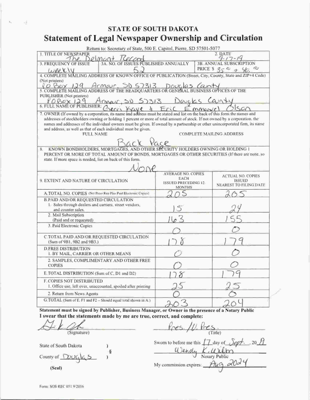 STATE OF SOUTH DAKOTA
Statement of Legal Newspaper Ownership and Circulation
Return to: Secretary of State, 500 E Capitol, Pierre, SD 57501-5077
1. TITLE OF NEWSPAPER
The Delmont Record
2. DATE
9-17-19
3. FREQUENCY OF ISSUE
weekly
3A. NO. OF ISSUES PUBLISHED ANNUALLY
52
3B. ANNUAL SUBSCRIPTION PRICE
4. COMPLETE MAILING ADDRESS OF KNOWN OFFICE OF PUBLICATION (Street, City, County, State and ZIP+4 Code) (Not printers)
PO Box 129 Armour, SD 57313 Douglas County
5. COMPLETE MAILING ADDRESS OF THE HEADQUARTERS OR GENERAL BUSINESS OFFICES OF THE PUBLISHER (Not printers)
PO Box 129 Armour, SD 57313 Douglas County
6. FULL NAME OF PUBLISHER:
7. OWNER (If owned by a corporation, its name and address must be stated and on the back of this form the names and addresses of stockholders owning or holding 1 percent or more of total amount of stock. If not owned by a corporation, the names and addresses of the individual owners must be given. If owned by a partnership or other unincorporated firm, its name and address, as well as that of each individual must be given.
FULL NAME
COMPLETE MAILING ADDRESS
Back Page
8. KNOWN BONDHOLDERS, MORTGAGES, AND OTHER SECURITY HOLDERS OWNING OR HOLDING 1 PERCENT OR MORE OF TOTAL AMOUNT OF BONDS, MORTGAGES OR OTHER SECURITIES (If there are none, so state. If more space is needed, list on back of this form.
None
9. EXTENT AND NATURE OF CIRCULATION
AVERAGE NO. COPIES EACH ISSUED PRECEDING 12 MONTHS
ACTUAL NO. COPIES ISSUED NEAREST TO FILING DATE
A. TOTAL NO. COPIES
205
205
B. PAID AND/OR REQUESTED CIRCULATION
1. Sales through dealers and carriers, street vendors, and counter sales.
15
24
2. Mail Subscription (Paid and or requested)
163
155
3. Paid Electronic Copies
0
0
C. TOTAL PAID AND/OR REQUESTED CIRCULATION (Sum of 9B1, 9B2 and 9B3.)
178
179
D. FREE DISTRIBUTION
1. BY MAIL, CARRIER OR OTHER MEANS
0
0
2. SAMPLES, COMPLIMENTARY AND OTHER FREE COPIES
0
0
E. TOTAL DISTRIBUTION (Sum of C, D1 and D2)
178
179
F. COPIES NOT DISTRIBUTED
1. Office use, left over, unaccounted, spoiled after printing
25
25
2. Return from News Agents
0
0
G. TOTAL
203
204
Statement must be signed by Publisher, Business Manager, or Owner in the presence of a Notary Public
I swear that the statements made by me are true, correct, and complete:
(Signature)
(Title)
State of South Dakota
County of Douglas
(Seal)
Sworn to before me this 17 day of Sept. 20 19
Notary Public
My commission expires: Aug 2024